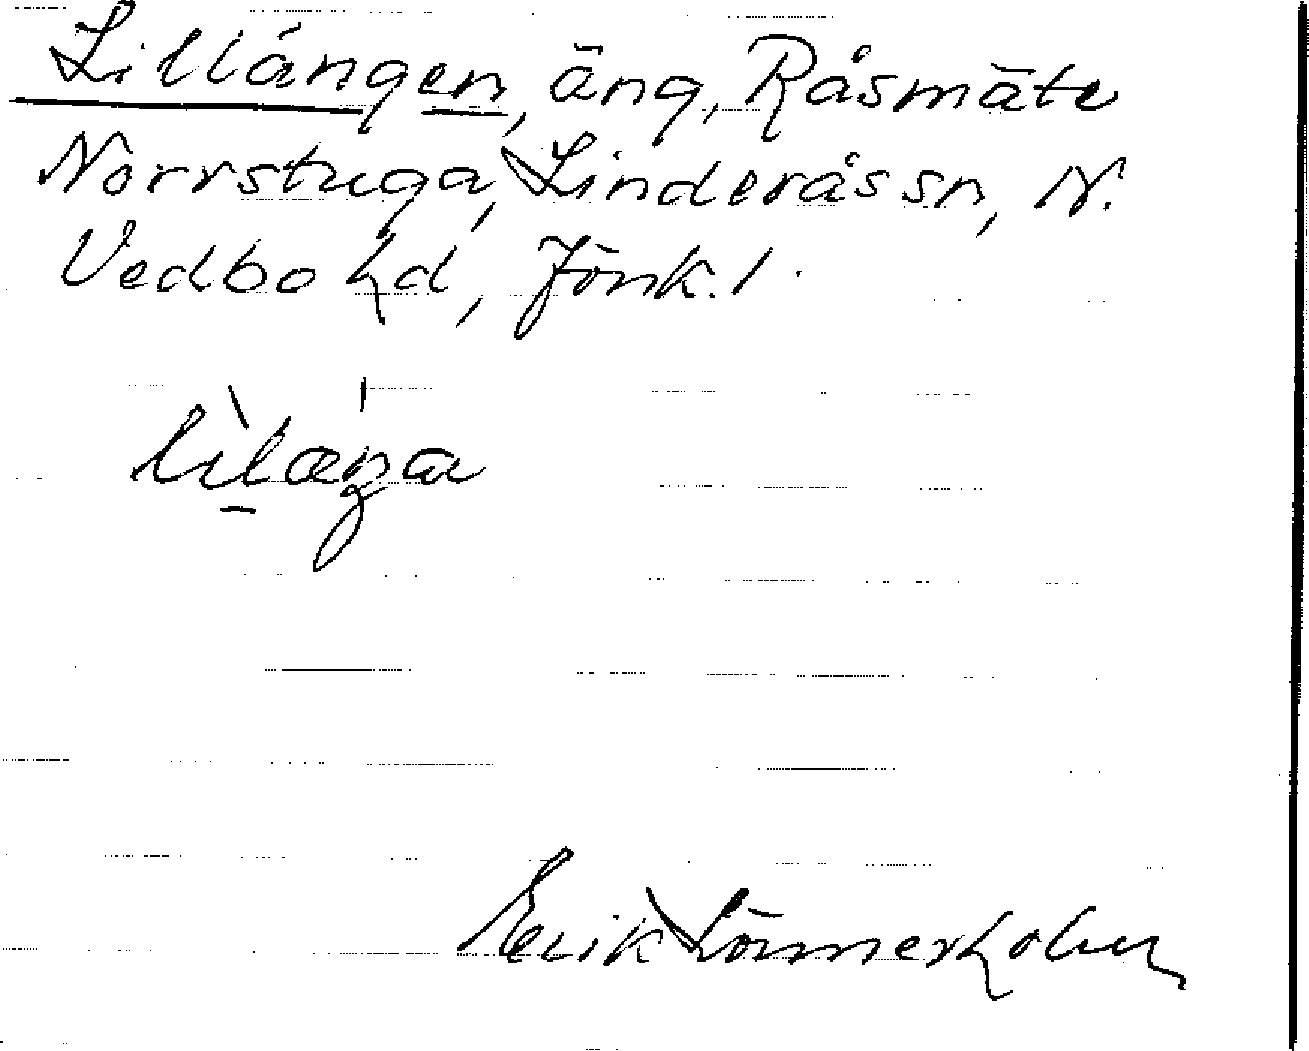 Lillängen, äng, Råsmäte
Norrstuga, Linderås sn, N.
Vedbo hd, Jönk. l.
lìlæŋa
Erik Lönnerholm